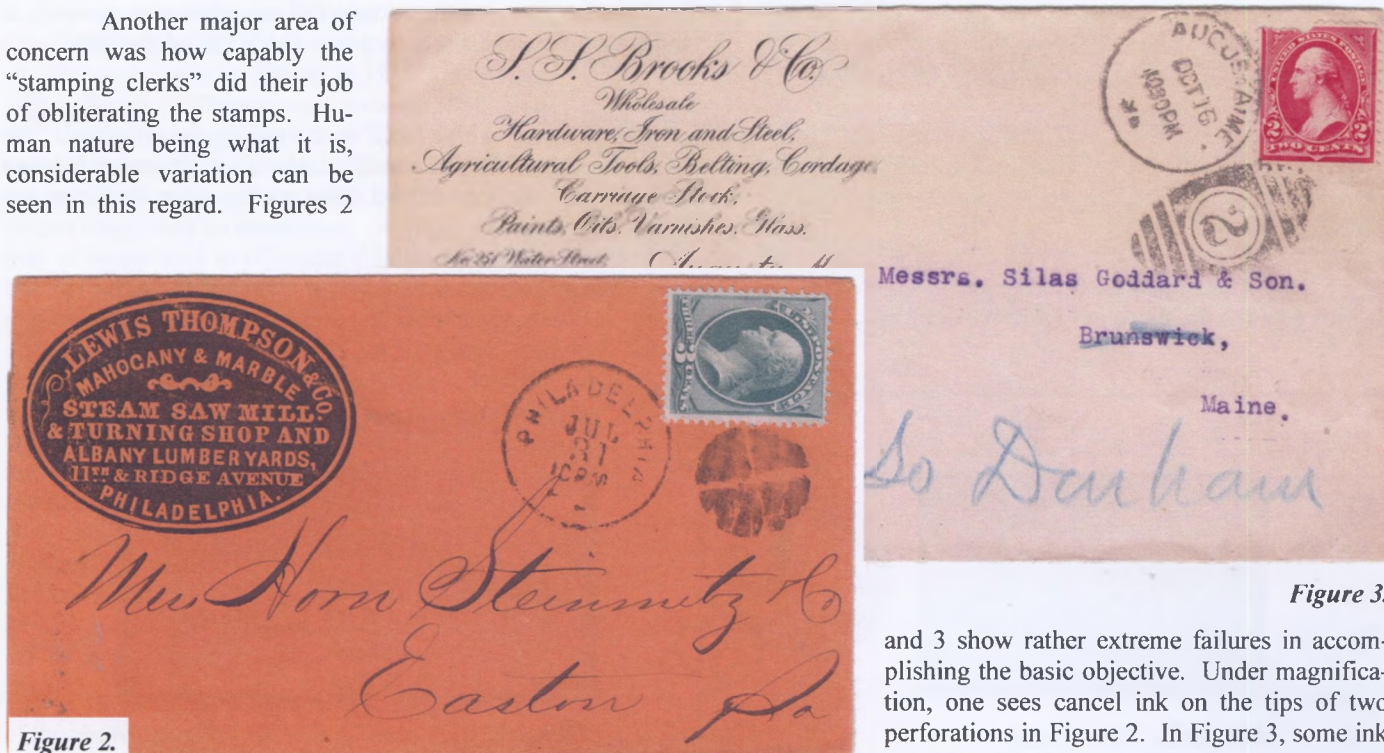 Another major area of
concern was how capably the
“stamping clerks” did their job
of obliterating the stamps. Hu-
man nature being what it is,
considerable variation can be
seen in this regard. Figures 2
S. S. Brooks & Co.
Wholesale
Hardware, Iron and Steel,
Agricultural Tools, Belting, Cordage
Carriage Stock,
Paints, Oils, Varnishes, Glass.
Water Street,
OCT 16
1030PM
UNITED STATES POSTAGE
2 2
TWO CENTS
2
Messrs. Silas Goddard & Son.
Brunswick,
Maine.
So
LEWIS THOMPSON & CO.
MAHOGANY & MARBLE
STEAM SAW MILL.
& TURNING SHOP AND
ALBANY LUMBER YARDS,
11TH & RIDGE AVENUE
PHILADELPHIA.
PHILADELPHIA
JUL
31
3
Horn Steinmetz & Co
Easton Pa
Figure 2.
Figure 3.
and 3 show rather extreme failures in accom-
plishing the basic objective. Under magnifica-
tion, one sees cancel ink on the tips of two
perforations in Figure 2. In Figure 3, some ink